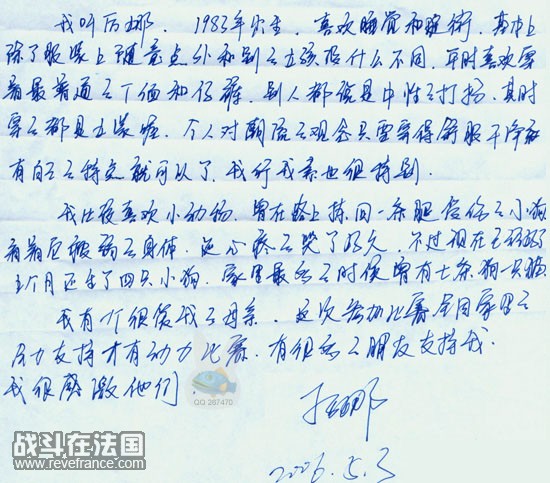 我叫厉娜. 1983年出生. 喜欢睡觉和逛街. 基本上
除了服装上随意点外和别的女孩没什么不同. 平时喜欢穿
着最普通的T恤和仔裤. 别人都说是中性的打扮. 其时
穿的都是女装喔. 个人对潮流的观念只要穿得舒服干净
有自己的特点就可以了. 我行我素也很特别.
我比较喜欢小动物. 曾在路上捡回一条
看着它 的身体. 还心疼的哭了好久. 不过现在
个月还生了四只小狗. 家里最多的时候曾有七条狗一只猫
我有个很爱我的母亲. 这次参加比赛是因家里的
全力支持才有动力比赛. 有很多的朋友支持我.
我很感激他们.
厉娜
2006.5.3
QQ 287470
战斗在法国
www.revefrance.com